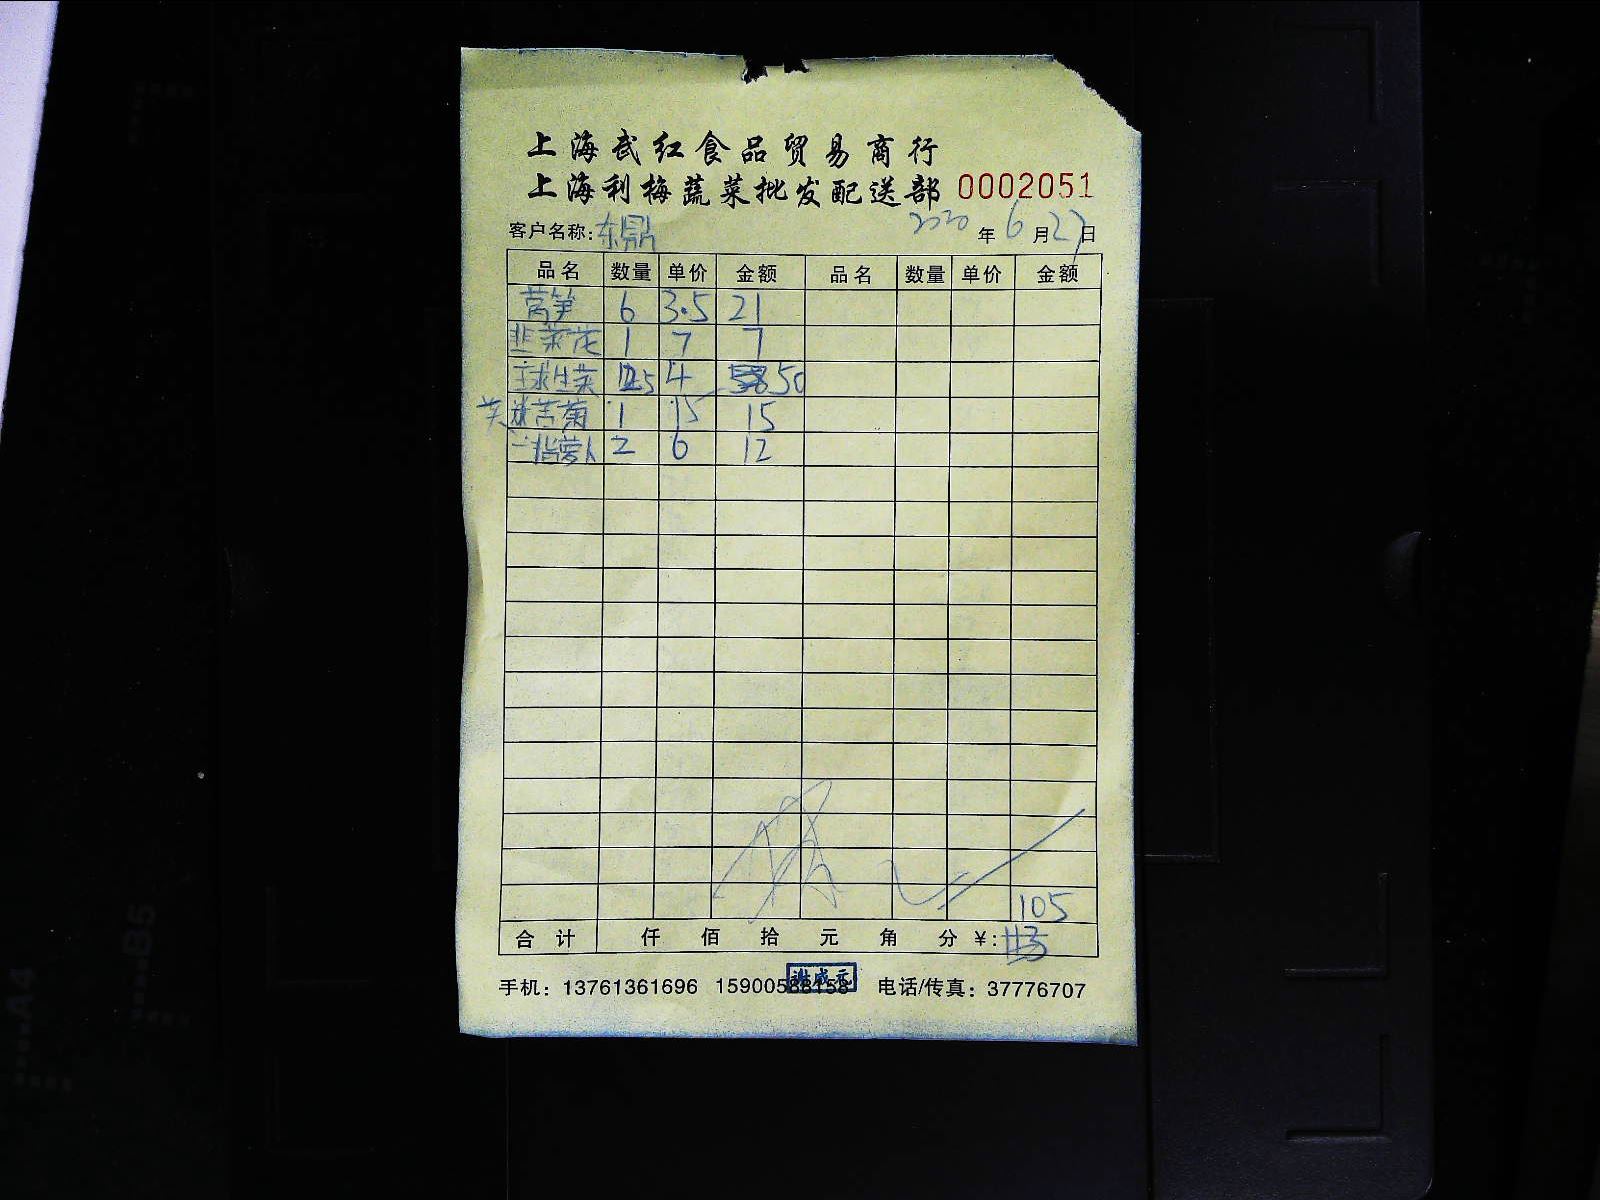 上海武红食品贸易商行
上海利梅蔬菜批发配送部 0002051
客户名称: 东鼎 2020 年 6 月 27 日
品名 数量 单价 金额 品名 数量 单价 金额
莴笋 6 3.5 21
韭菜花 1 7 7
球生菜 12.5 4 50
苦菊 1 15 15
手指萝卜 2 6 12
105
合计 仟 佰 拾 元 角 分 ¥:
手机: 13761361696 15900588158 电话/传真: 37776707
谢咸元